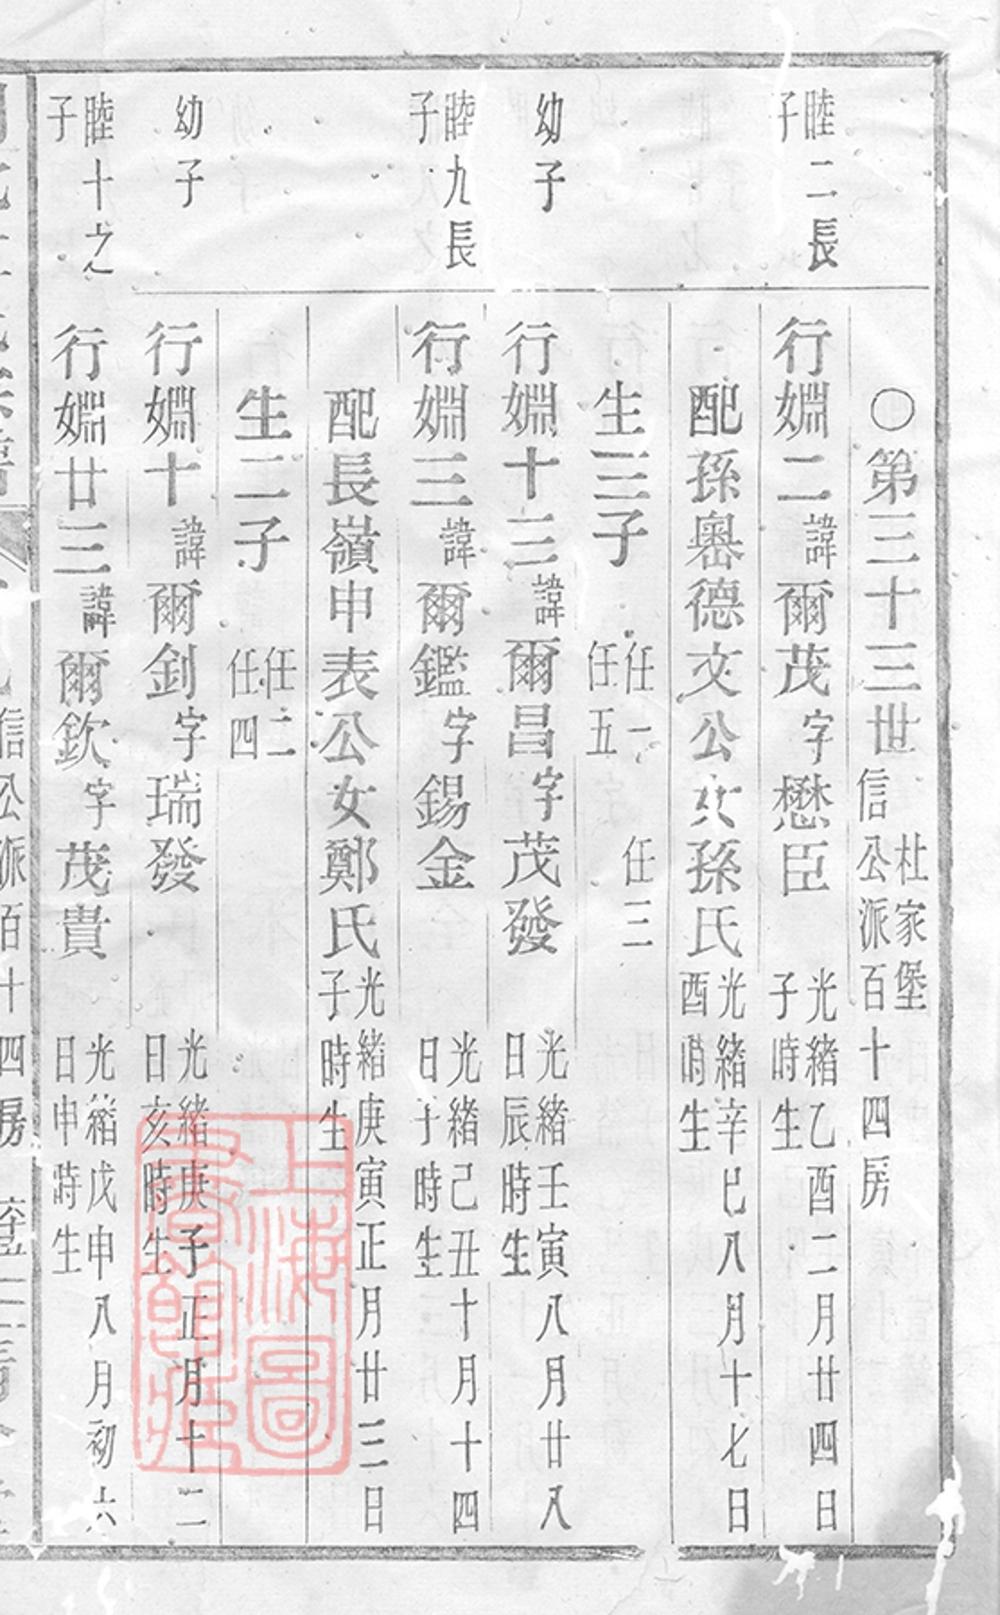 ○第三十三世 杜家堡 信公派百十四房
睦二長子
行婣二 諱爾茂 字懋臣 光緒乙酉二月廿四日子時生
配孫墺德文公女孫氏 光緒辛巳八月十七日酉時生
生三子 任一 任三 任五
幼子
行婣十三 諱爾昌 字茂發 光緒壬寅八月廿八日辰時生
睦九長子
行婣三 諱爾鑑 字錫金 光緒己丑十月十四日子時生
配長嶺申表公女鄭氏 光緒庚寅正月廿三日子時生
生二子 任二 任四
幼子
行婣十 諱爾釗 字瑞發 光緒庚子正月十二日亥時生
睦十之子
行婣廿三 諱爾欽 字茂貴 光緒戊申八月初六日申時生
信公派百十四房
上海圖書館藏